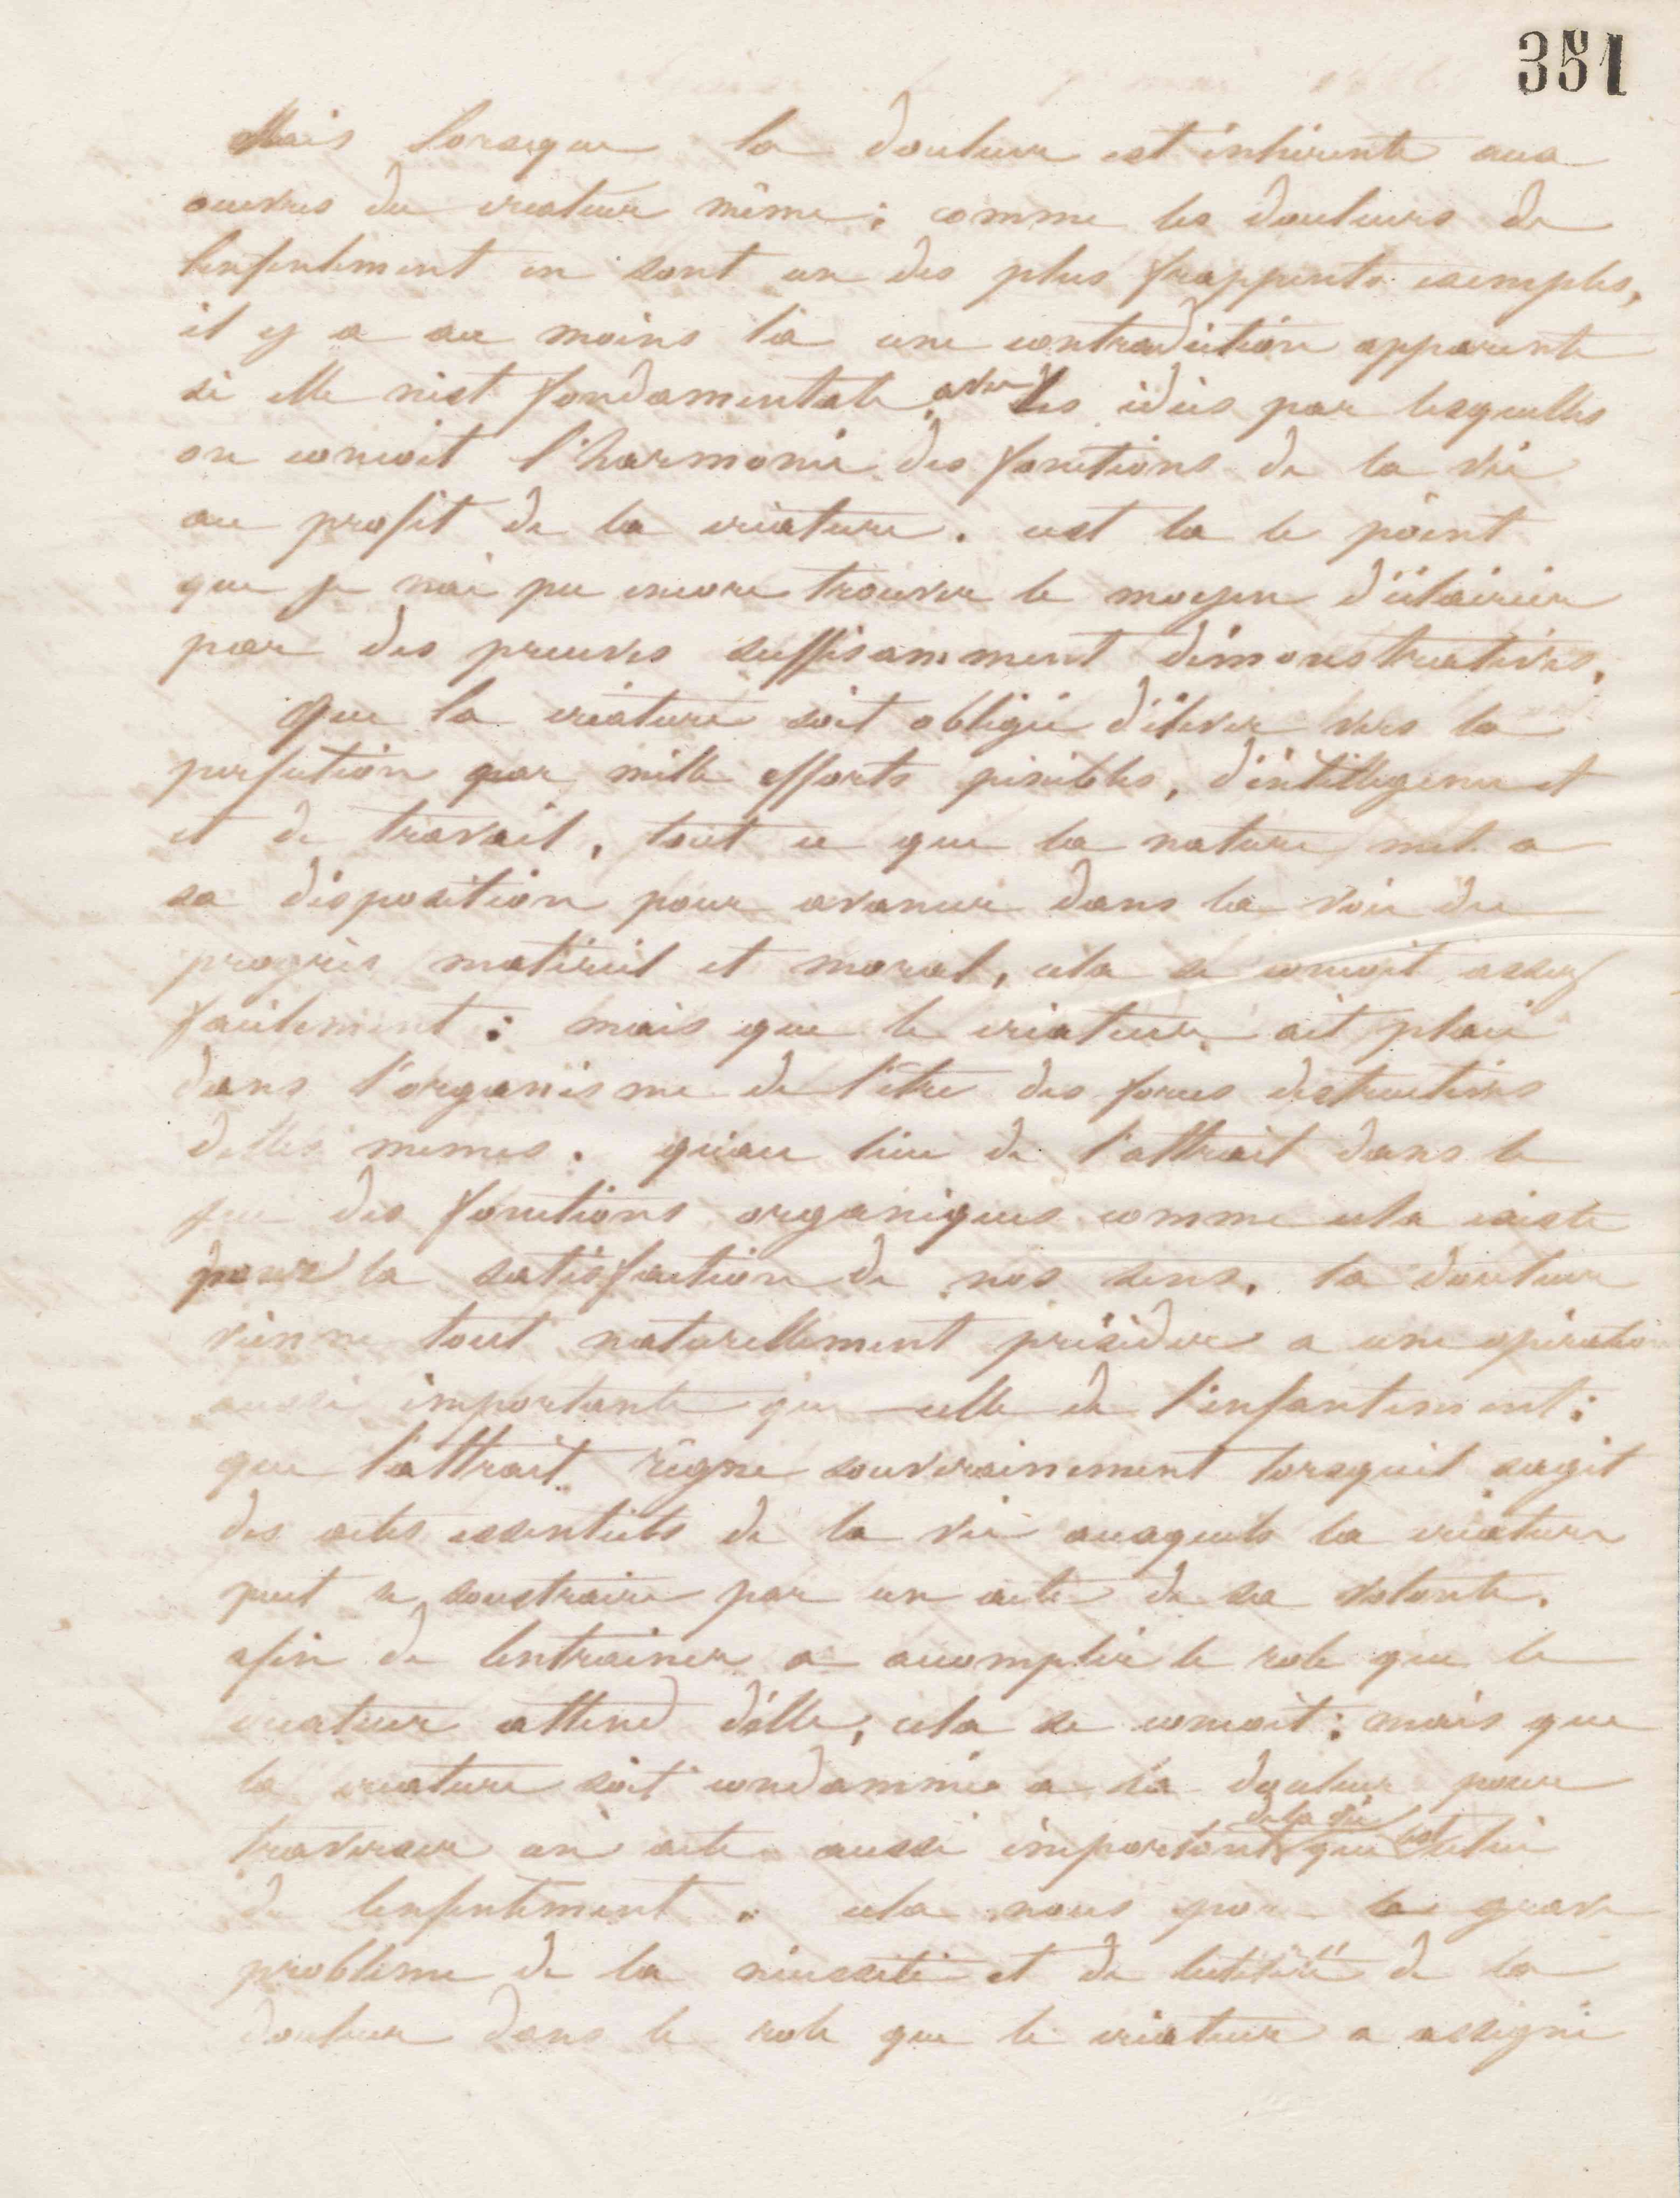 351
Mais lorsque la douleur est inhérente aux
œuvres du créateur même ; comme les douleurs de
lenfentement en sont un des plus frappents exemples,
il y a au moins là une contradiction apparente
si elle nest fondamentale avec les idées par lesquelles
on concoit l'harmonie des fonctions de la vie
au profit de la créature. cest la le point
que je nai pu encore trouver le moyen d'éclaircir
par des preuves suffisamment démonstratives.
Que la créature soit obligée d'élever vers la
perfection par mille efforts pénibles, d'intelligence et
et de travail, tout ce que la nature met a
sa disposition pour avancer dans la voie du
progrès matériel et moral, cela se concoit assez
facilement : mais que le créateur ait placé
dans l'organisme de l'être des forces destructives
delles memes. qu'au lieu de l'attrait dans le
jeu des fonctions organiques comme cela existe
pour la satisfaction de nos sens. la douleur
vienne tout naturellement présider a une opération
aussi importante que celle de l'enfantement ;
que l'attrait règne souverainement lorsquil sagit
des actes essentiels de la vie auxquels la créature
peut se soustraire par un acte de sa volonte.
afin de lentrainer a accomplir le role que le
créateur attend d'elle, cela se concoit ; mais que
la créature soit condamnée a la douleur pour
traverser un acte aussi important de la vie que celui
de lenfentement. cela nous pose le grave
problème de la nécessité et de lutilité de la
douleur dans le role que le créateur a assigné